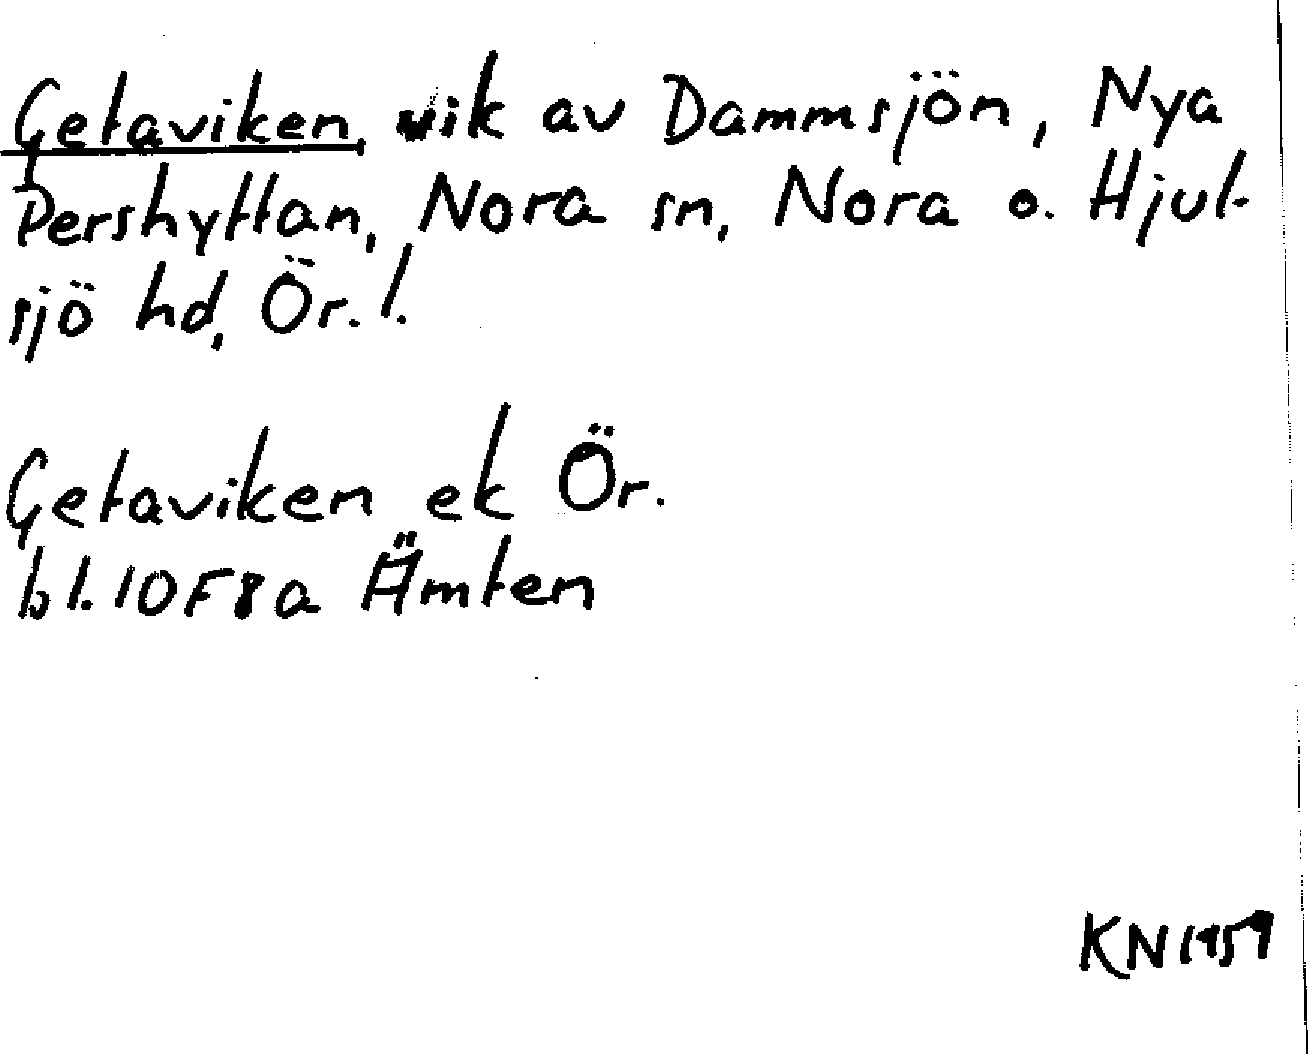 Getaviken, vik av Dammsjön, Nya
Pershyttan, Nora sn, Nora o. Hjul-
sjö hd, Ör. l.
Getaviken ek Ör.
bl. 10F8a Ämten
KN 1959